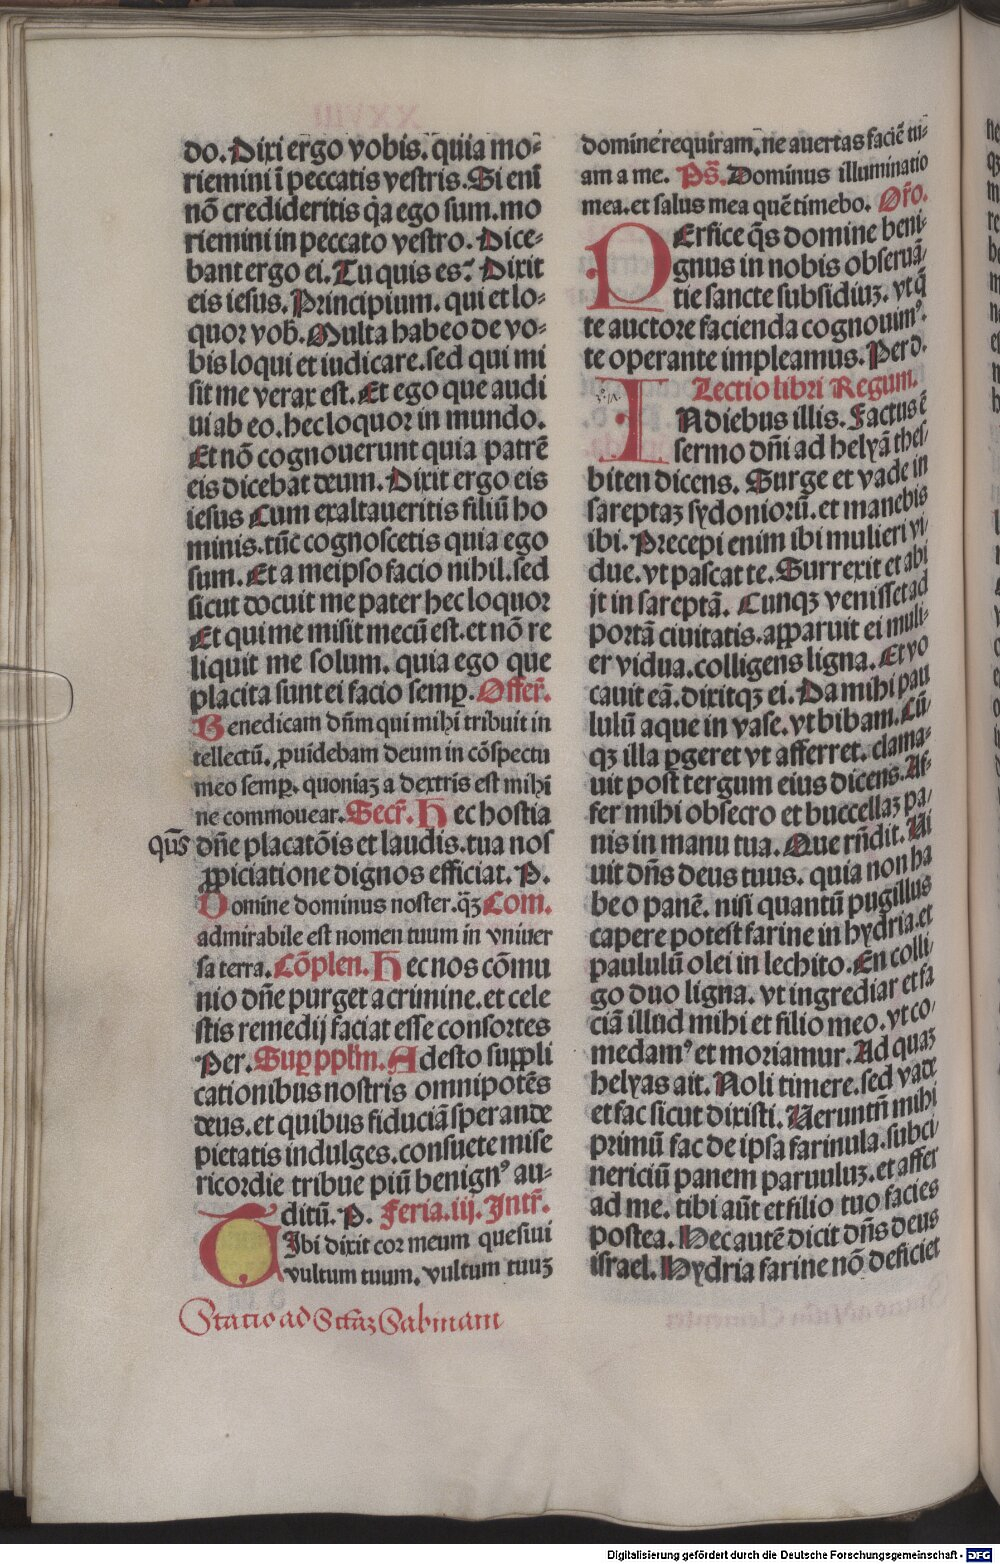 do. Dixi ergo vobis. quia mo-
riemini ī peccatis vestris. Si enī
nō credideritis q̄a ego sum. mo
riemini in peccato vestro. Dice-
bant ergo ei. Tu quis es? Dixit
eis iesus. Principium. qui et lo-
quor vob̄. Multa habeo de vo-
bis loqui et iudicare. sed qui mi
sit me verax est. Et ego que audi
ui ab eo. hec loquor in mundo.
Et nō cognouerunt quia patrē
eis dicebat deum. Dixit ergo eis
iesus Cum exaltaueritis filiū ho
minis. tūc cognoscetis quia ego
sum. Et a meipso facio nihil. sed
sicut docuit me pater hec loquor
Et qui me misit mecū est. et nō re
liquit me solum. quia ego que
placita sunt ei facio semꝑ. Offer̄.
Benedicam dn̄m qui mihi tribuit in
tellectū. ꝓuidebam deum in cōspectu
meo semꝑ. quoniaꝫ a dextris est mihi
ne commouear. Secr̄. Hec hostia
qūs dn̄e placatōis et laudis. tua nos
ꝓpiciatione dignos efficiat. P.
Domine dominus noster. q̄ꝫ Com.
admirabile est nomen tuum in vniuer
sa terra. Cōplen. Hec nos cōmu
nio dn̄e purget a crimine. et cele
stis remedij faciat esse consortes
Per. Suꝑ pplm̄. Adesto suppli
cationibus nostris omnipotēs
deus. et quibus fiduciā sperande
pietatis indulges. consuete mise
ricordie tribue piū benignꝰ au-
ditū. P. Feria. iij. Intr̄.
Tibi dixit cor meum quesiui
vultum tuum. vultum tuuꝫ
Statio ad Sctaꝫ Sabinam
domine requiram. ne auertas faciē tu-
am a me. Ps̄. Dominus illuminatio
mea. et salus mea quē timebo. Or̄o.
PErfice q̄s domine beni-
gnus in nobis obseruā-
tie sancte subsidiuꝫ. vt q̄
te auctore facienda cognouimꝰ.
te operante impleamus. Per d.
Lectio libri Regum.
IN diebus illis. Factus ē
sermo dn̄i ad helyā thes-
biten dicens. Surge et vade in
sareptaꝫ sydoniorū. et manebis
ibi. Precepi enim ibi mulieri vi-
due. vt pascat te. Surrexit et abi
it in sareptā. Cunqꝫ venisset ad
portā ciuitatis. apparuit ei muli-
er vidua. colligens ligna. Et vo
cauit eā. dixitqꝫ ei. Da mihi pau
lulū aque in vase. vt bibam. Cū-
qꝫ illa ꝑgeret vt afferret. clama-
uit post tergum eius dicens. Af-
fer mihi obsecro et buccellaꝫ pa-
nis in manu tua. Que rn̄dit. Ui
uit dn̄s deus tuus. quia non ha
beo panē. nisi quantū pugillus
capere potest farine in hydria. et
paululū olei in lechito. En colli-
go duo ligna. vt ingrediar et fa
ciā illud mihi et filio meo. vt co-
medamꝰ et moriamur. Ad quaꝫ
helyas ait. Noli timere. sed vade
et fac sicut dixisti. Ueruntn̄ mihi
primū fac de ipsa farinula. subci-
nericiū panem paruuluꝫ. et affer
ad me. tibi aūt et filio tuo facies
postea. Hec autē dicit dn̄s deus
israel. Hydria farine nō deficiet
Digitalisierung gefördert durch die Deutsche Forschungsgemeinschaft - DFG